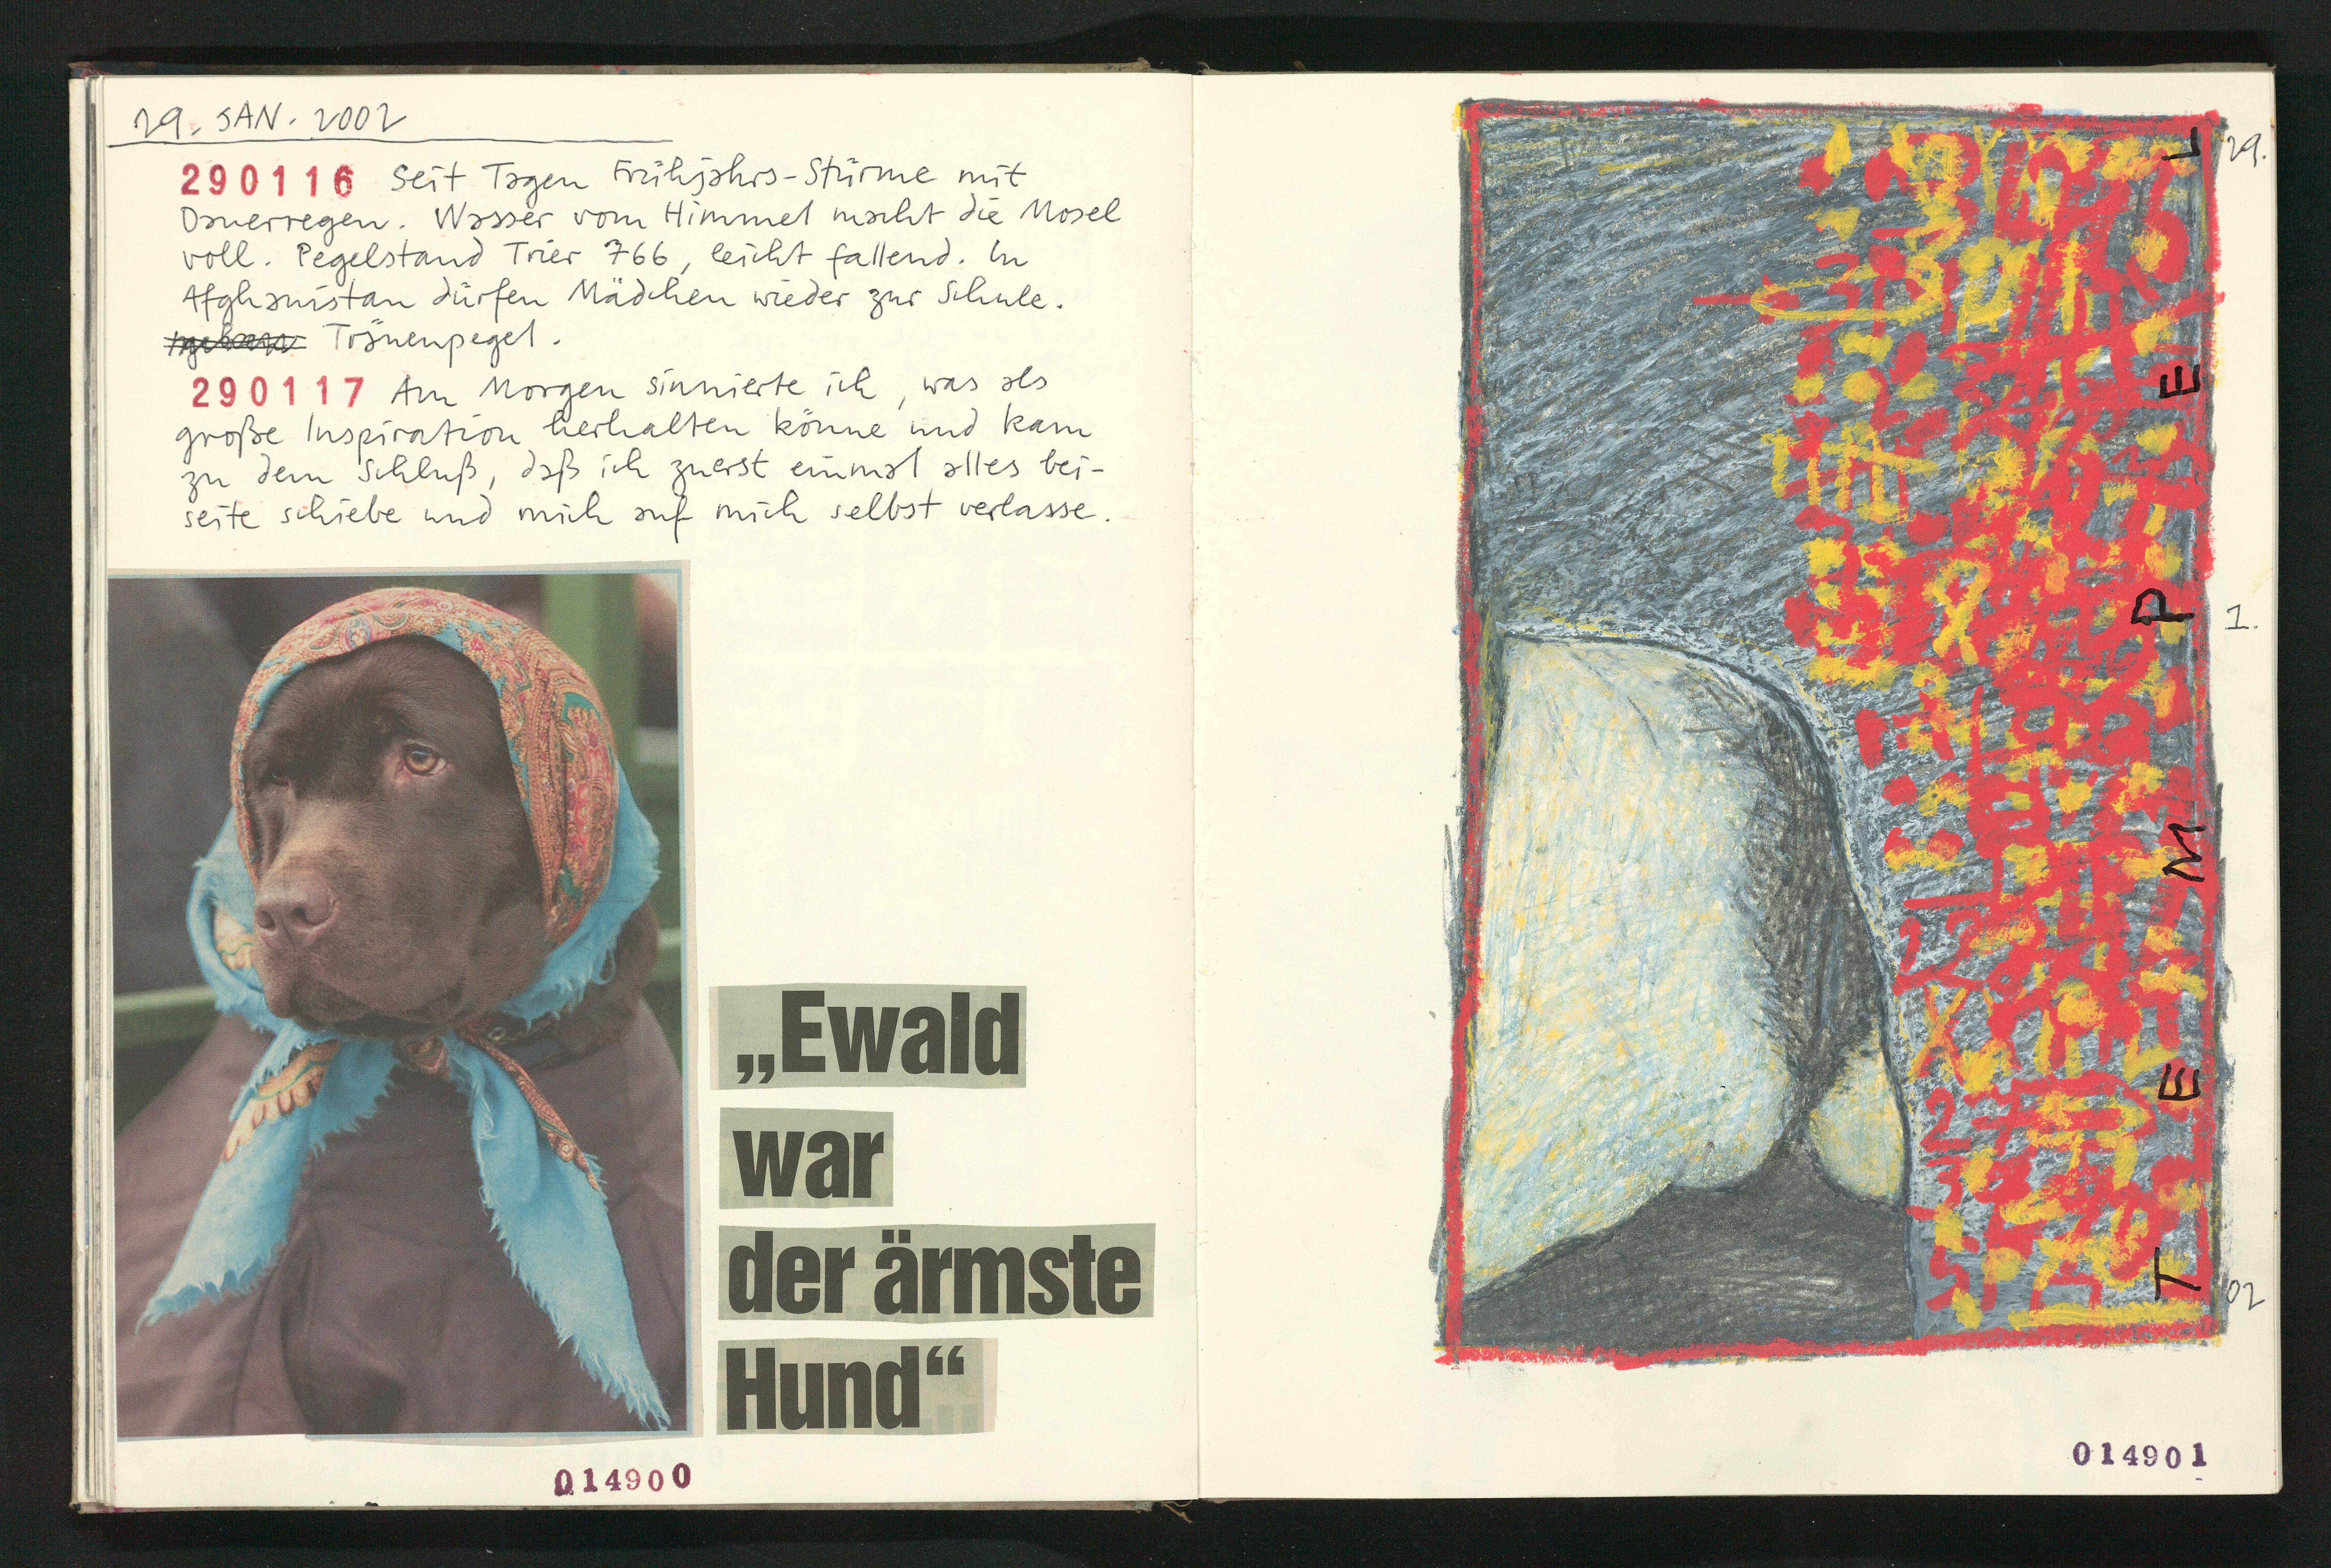 29. JAN. 2002
290116 Seit Tagen Frühjahrs-Stürme mit
Dauerregen. Wasser vom Himmel macht die Mosel
voll. Pegelstand Trier 766, leicht fallend. In
Afghanistan dürfen Mädchen wieder zur Schule.
Tränenpegel.
290117 Am Morgen sinnierte ich, was als
große Inspiration herhalten könne und kam
zu dem Schluß, daß ich zuerst einmal alles bei-
seite schiebe und mich auf mich selbst verlasse.
„Ewald
war
der ärmste
Hund“
014900
TEMPEL
29.
1.
02
014901